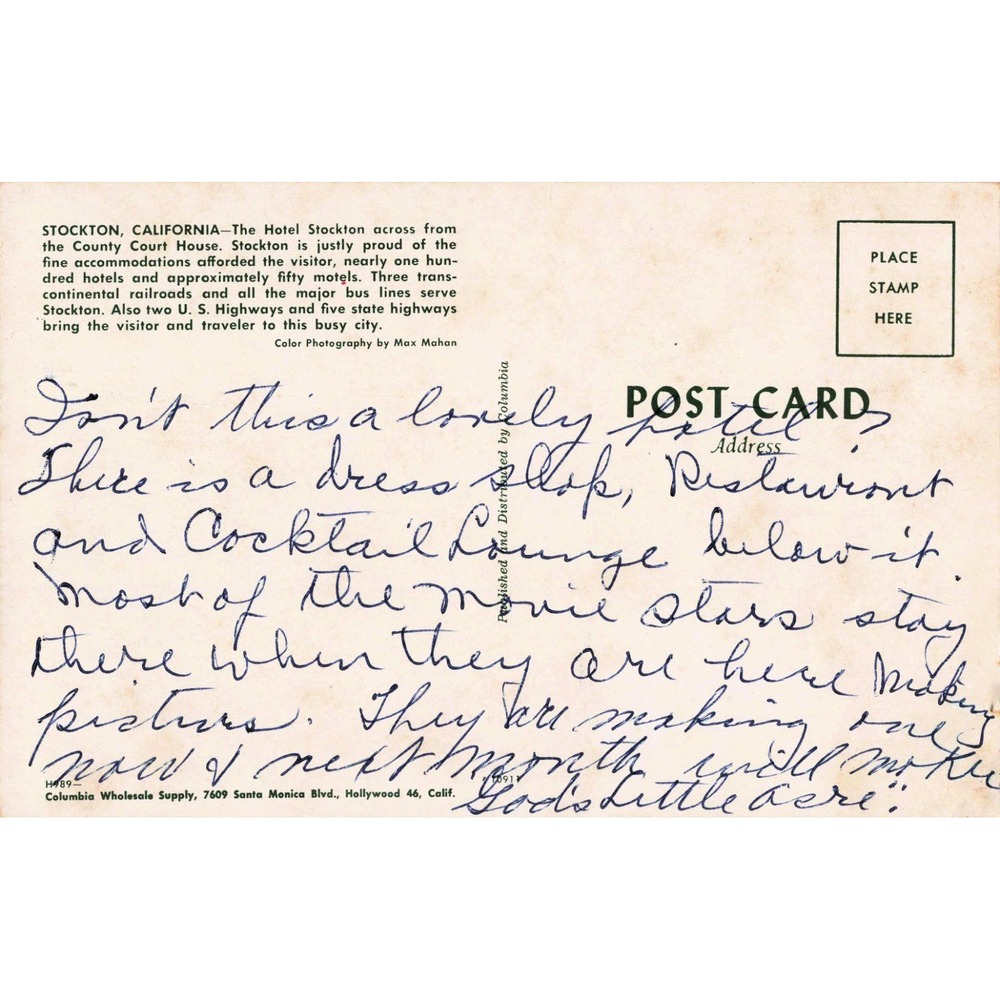 STOCKTON, CALIFORNIA—The Hotel Stockton across from
the County Court House. Stockton is justly proud of the
fine accommodations afforded the visitor, nearly one hun-
dred hotels and approximately fifty motels. Three trans-
continental railroads and all the major bus lines serve
Stockton. Also two U. S. Highways and five state highways
bring the visitor and traveler to this busy city.
Color Photography by Max Mahan
PLACE
STAMP
HERE
POST CARD
Address
Published and Distributed by Columbia
Isn't this a lovely hotel?
There is a dress shop, Restauront
and Cocktail Lounge below it.
Most of the movie stars stay
there when they are here making
picturs. They are making one
now & next month will make
"God's Little Acre".
H989—
10911
Columbia Wholesale Supply, 7609 Santa Monica Blvd., Hollywood 46, Calif.